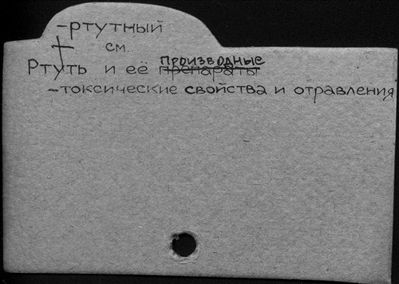 -ртутный
см.
Ртуть и её производные препараты
-токсические свойства и отравления